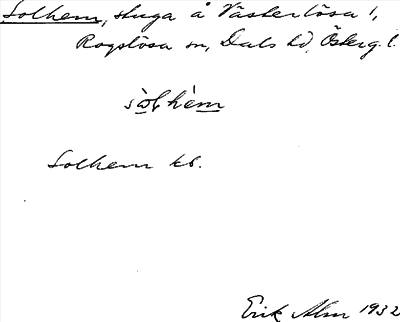 Solhem, stuga å Västerlösa 1,
Rogslösa sn, Dals hd, Österg. l.
sò̲l hèm
Solhem kb.
Erik Alm 1932